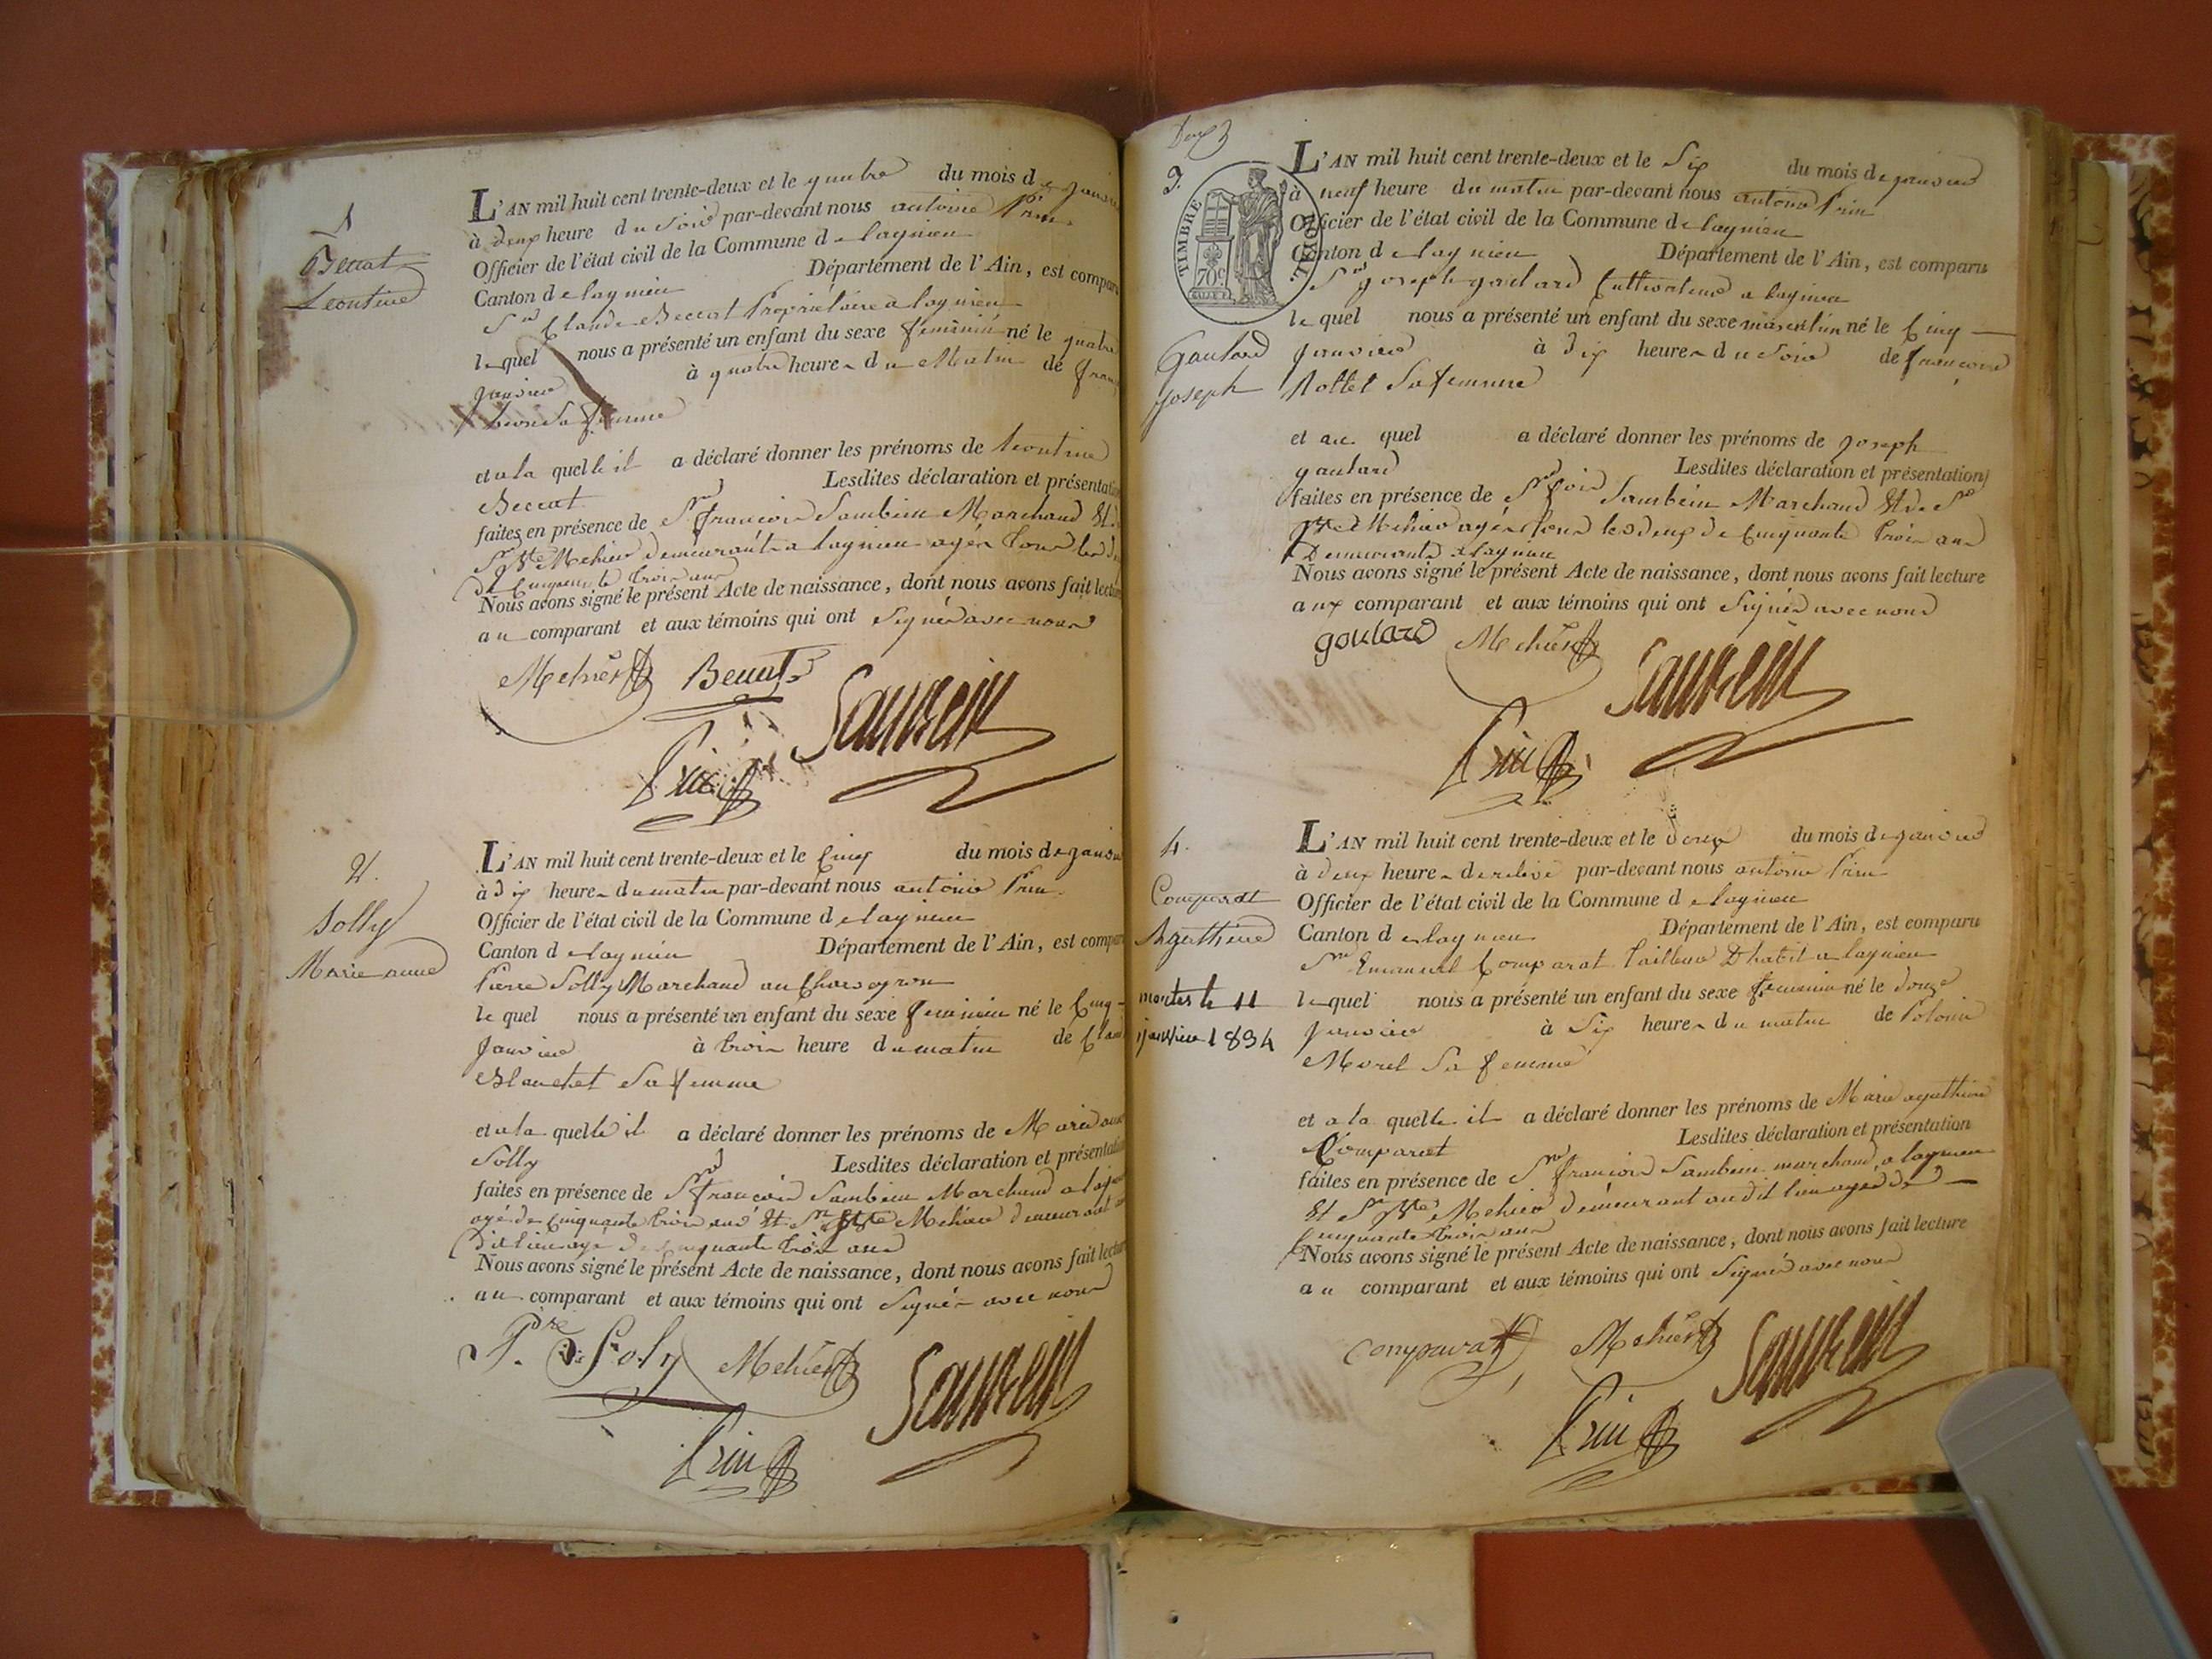 1
Beccat
Leontine
L'AN mil huit cent trente-deux et le quatre du mois de janvier
à deux heure du soir par-devant nous antoine Prin
Officier de l'état civil de la Commune de lagnieu
Canton de lagnieu Département de l'Ain, est comparu
Sr Claude Beccat Propriétaire a lagnieu
lequel nous a présenté un enfant du sexe feminin né le quatre
janvier à quatre heure du Matin de
sa femme
et a la quelle il a déclaré donner les prénoms de leontine
Beccat Lesdites déclaration et présentation
faites en présence de Sr françois Sambein Marchand Et de
Sr Bte Mehier demeurants a lagnieu agés tous les
de Cinquante trois ans
Nous avons signé le présent Acte de naissance, dont nous avons fait lecture
au comparant et aux témoins qui ont Signés avec nous
Mehier Beccat
Sambein
Prin
2.
Solly
Marie anne
L'AN mil huit cent trente-deux et le Cinq du mois de janvier
à dix heure du matin par-devant nous antoine Prin
Officier de l'état civil de la Commune de lagnieu
Canton de lagnieu Département de l'Ain, est comparu
Pierre Solly Marchand au
lequel nous a présenté un enfant du sexe feminin né le Cinq
janvier à trois heure du matin de
Blanchet Sa femme
et a la quelle il a déclaré donner les prénoms de Marie anne
Solly Lesdites déclaration et présentation
faites en présence de Sr françois Sambein Marchand a
agé de Cinquante trois ans Et Sr Bte Mehier demeurant
dit lieu agé de Cinquante trois ans
Nous avons signé le présent Acte de naissance, dont nous avons fait lecture
au comparant et aux témoins qui ont Signés avec nous
Pre Soly Mehier
Sambein
Prin
Deux
3.
TIMBRE ROYAL
70c
Gaulard
joseph
L'AN mil huit cent trente-deux et le Six du mois de janvier
à neuf heure du matin par-devant nous antoine Prin
Officier de l'état civil de la Commune de lagnieu
Canton de lagnieu Département de l'Ain, est comparu
Sr joseph gaulard Cultivateur a lagnieu
lequel nous a présenté un enfant du sexe masculin né le Cinq
janvier à dix heure du soir de françoise
Rollet Sa femme
et au quel a déclaré donner les prénoms de joseph
gaulard Lesdites déclaration et présentation
faites en présence de Sr Sambein Marchand Et de Sr
Bte Mehier agés tous les deux de Cinquante trois ans
Demeurants a lagnieu
Nous avons signé le présent Acte de naissance, dont nous avons fait lecture
aux comparant et aux témoins qui ont Signés avec nous
goulard Mehier
Sambein
Prin
4.
Comparat
Agathine
morte le 11
janvier 1834
L'AN mil huit cent trente-deux et le du mois de janvier
à deux heure de relevé par-devant nous antoine Prin
Officier de l'état civil de la Commune de lagnieu
Canton de lagnieu Département de l'Ain, est comparu
Sr Emanuel Comparat tailleur D'habit a lagnieu
lequel nous a présenté un enfant du sexe feminin né le douze
janvier à Six heure du matin de
Morel Sa femme
et a la quelle il a déclaré donner les prénoms de Marie agathine
Comparat Lesdites déclaration et présentation
faites en présence de Sr françois Sambein marchand a lagnieu
Et Sr Bte Mehier demeurant au dit lieu agés de
Cinquante trois ans
Nous avons signé le présent Acte de naissance, dont nous avons fait lecture
au comparant et aux témoins qui ont Signés avec nous
Comparat Mehier
Sambein
Prin